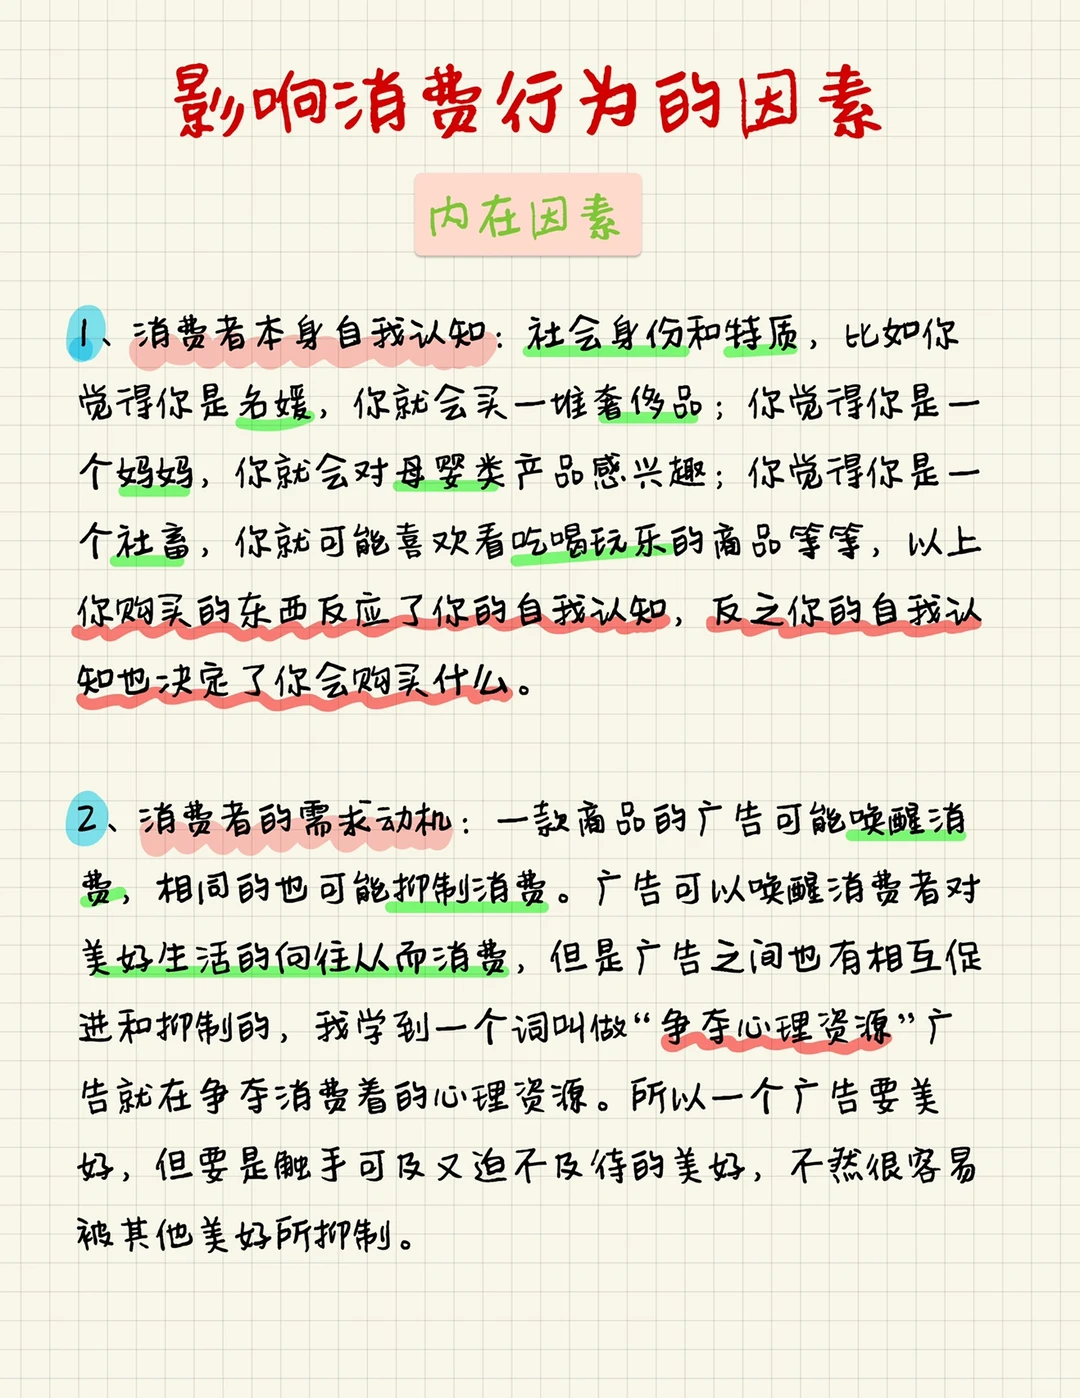 影响消费行为的因素
内在因素
1、消费者本身自我认知：社会身份和特质，比如你
觉得你是名媛，你就会买一堆奢侈品；你觉得你是一
个妈妈，你就会对母婴类产品感兴趣；你觉得你是一
个社畜，你就可能喜欢看吃喝玩乐的商品等等，以上
你购买的东西反应了你的自我认知，反之你的自我认
知也决定了你会购买什么。
2、消费者的需求动机：一款商品的广告可能唤醒消
费，相同的也可能抑制消费。广告可以唤醒消费者对
美好生活的向往从而消费，但是广告之间也有相互促
进和抑制的，我学到一个词叫做“争夺心理资源”广
告就在争夺消费着的心理资源。所以一个广告要美
好，但要是触手可及又迫不及待的美好，不然很容易
被其他美好所抑制。